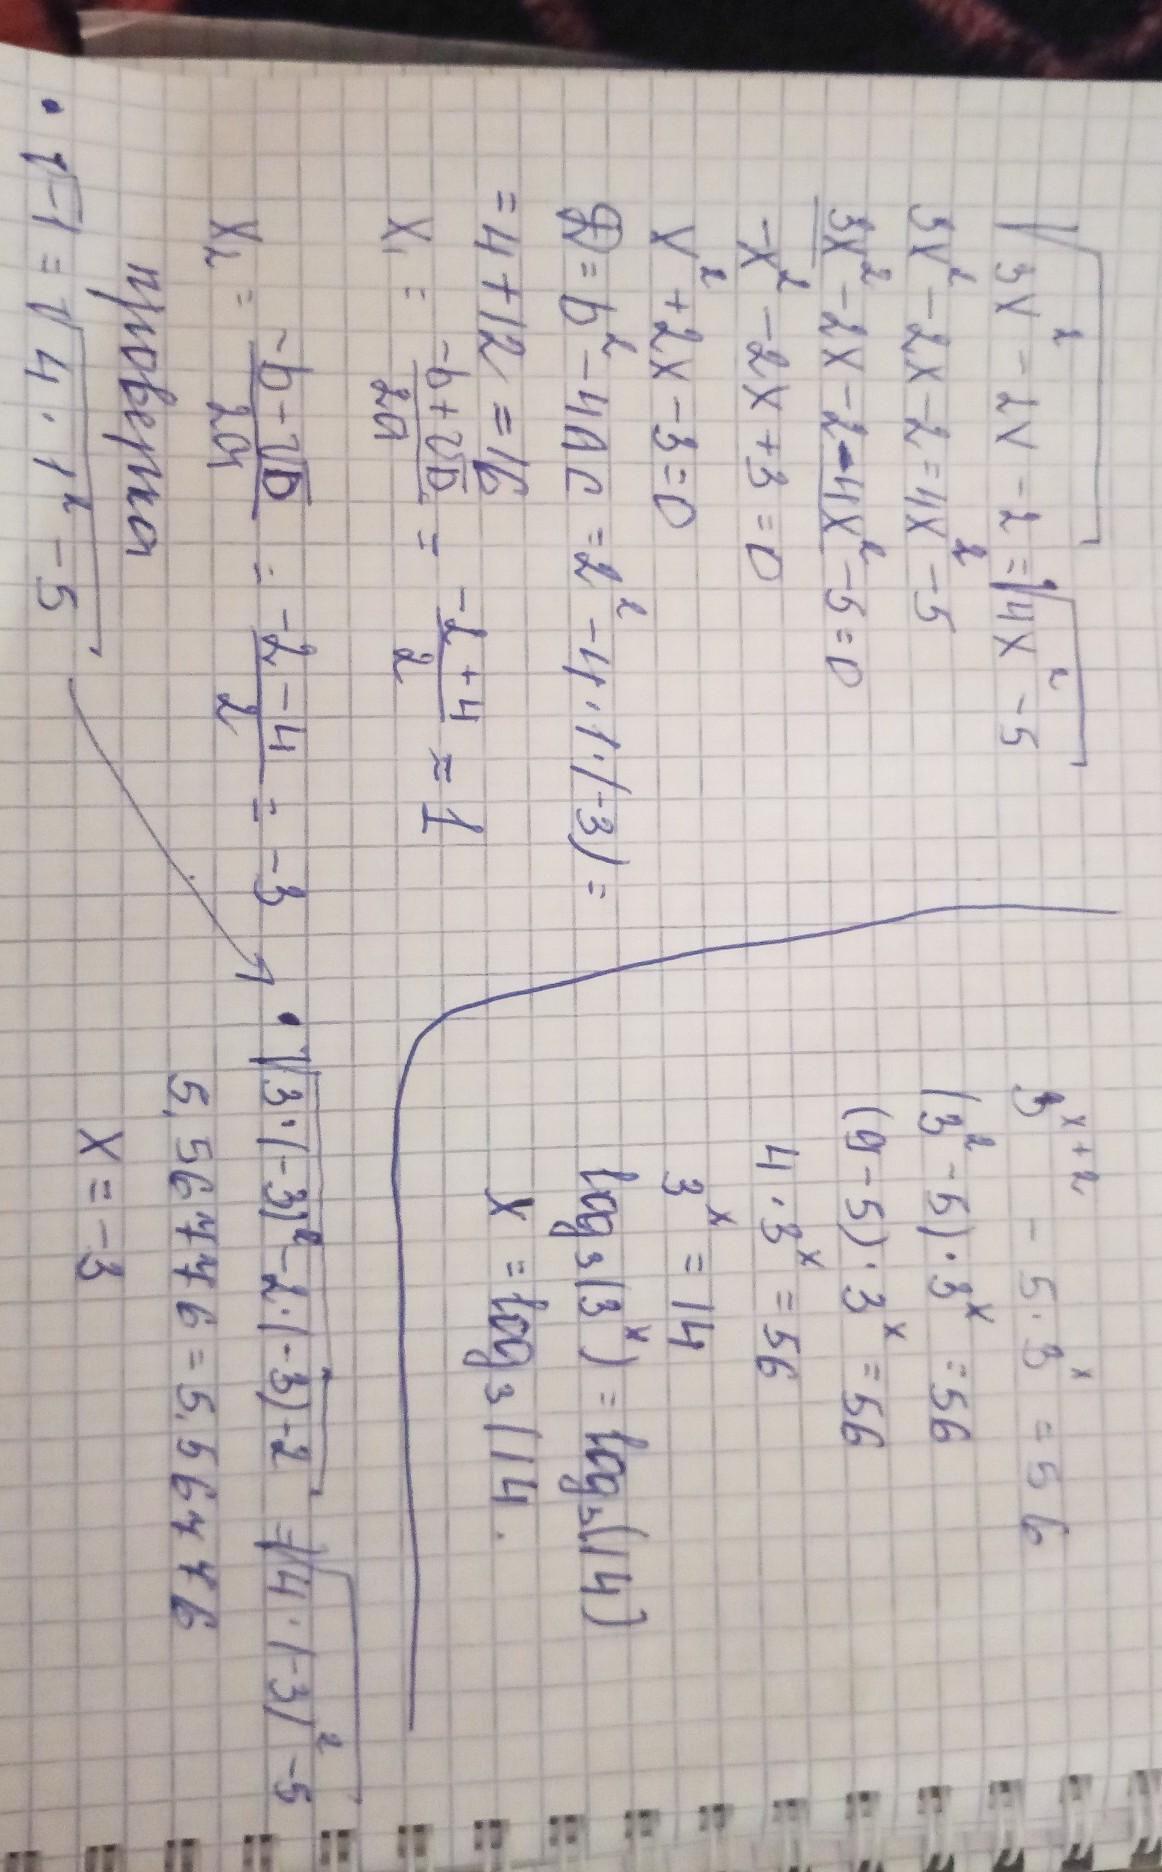 √3x² - 2x - 2 = √4x² - 5
3x² - 2x - 2 = 4x² - 5
3x² - 2x - 2 - 4x² - 5 = 0
-x² - 2x + 3 = 0
x² + 2x - 3 = 0
D = b² - 4ac = 2² - 4 · 1 · (-3) =
= 4 + 12 = 16
x₁ = -b + √D / 2a = -2 + 4 / 2 = 1
x₂ = -b - √D / 2a = -2 - 4 / 2 = -3
проверка
• √-1 = √4 · 1² - 5
• √3 · (-3)² - 2 · (-3) - 2 = √4 · (-3)² - 5
5,567776 = 5,567776
x = -3
3ˣ⁺² - 5 · 3ˣ = 56
(3² - 5) · 3ˣ = 56
(9 - 5) · 3ˣ = 56
4 · 3ˣ = 56
3ˣ = 14
log₃(3ˣ) = log₃(14)
x = log₃(14.